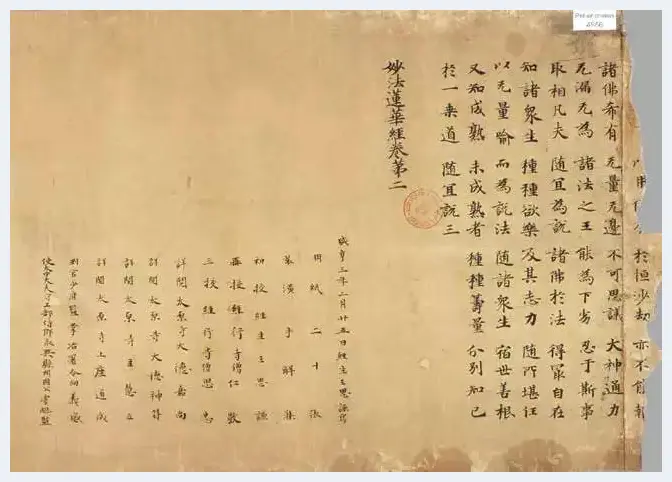 Pelliot chinois
4556
於恒沙劫 亦不能報
諸佛希有 无量无邊 不可思議 大神通力
无漏无為 諸法之王 能為下劣 忍于斯事
取相凡夫 隨宜為說 諸佛於法 得冣自在
知諸衆生 種種欲樂 及其志力 隨所堪任
以无量喻 而為說法 隨諸衆生 宿世善根
又知成熟 未成熟者 種種籌量 分別知已
於一乘道 隨宜說三
妙法蓮華經卷第二
咸亨三年二月廿五日經生王思謙寫
用紙二十張
裝潢手解集
初校經生王思謙
再校經行寺僧仁敬
三校經行寺僧思忠
詳閱太原寺大德嘉尚
詳閱太原寺大德神符
詳閱太原寺主慧立
詳閱太原寺上座道成
判官少府監掌冶署令向義感
使太中大夫守工部侍郎永興縣開國公虞昶監